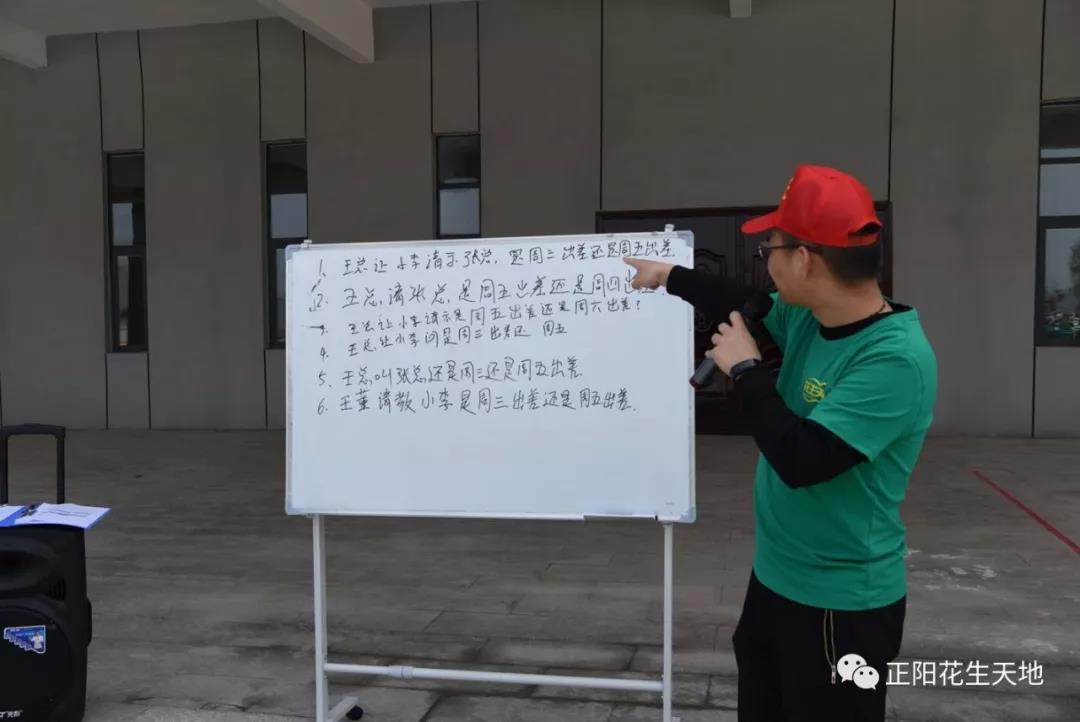 1. 王总让小李请示张总，是周三出差还是周五出差
2. 王总，请张总，是周五出差还是周四出差？
3. 王总让小李请示是周五出差还是周六出差？
4. 王总让小李问是周三出差还 周五
5. 王总叫张总还是周三还是周五出差.
6. 王董请教小李是周三出差还是周五出差.
正阳花生天地